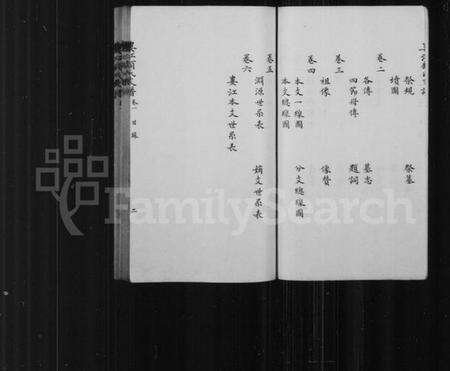 祭規 祭墓
墳圖
卷二
各傳 墓志
四節母傳 題詞
卷三
祖像 像贊
卷四
本支一線圖 分支總線圖
本支總線圖
卷五
淵源世系表 嫡支世系表
卷六
婁江本支世系表
卷一 目錄
二
FamilySearch